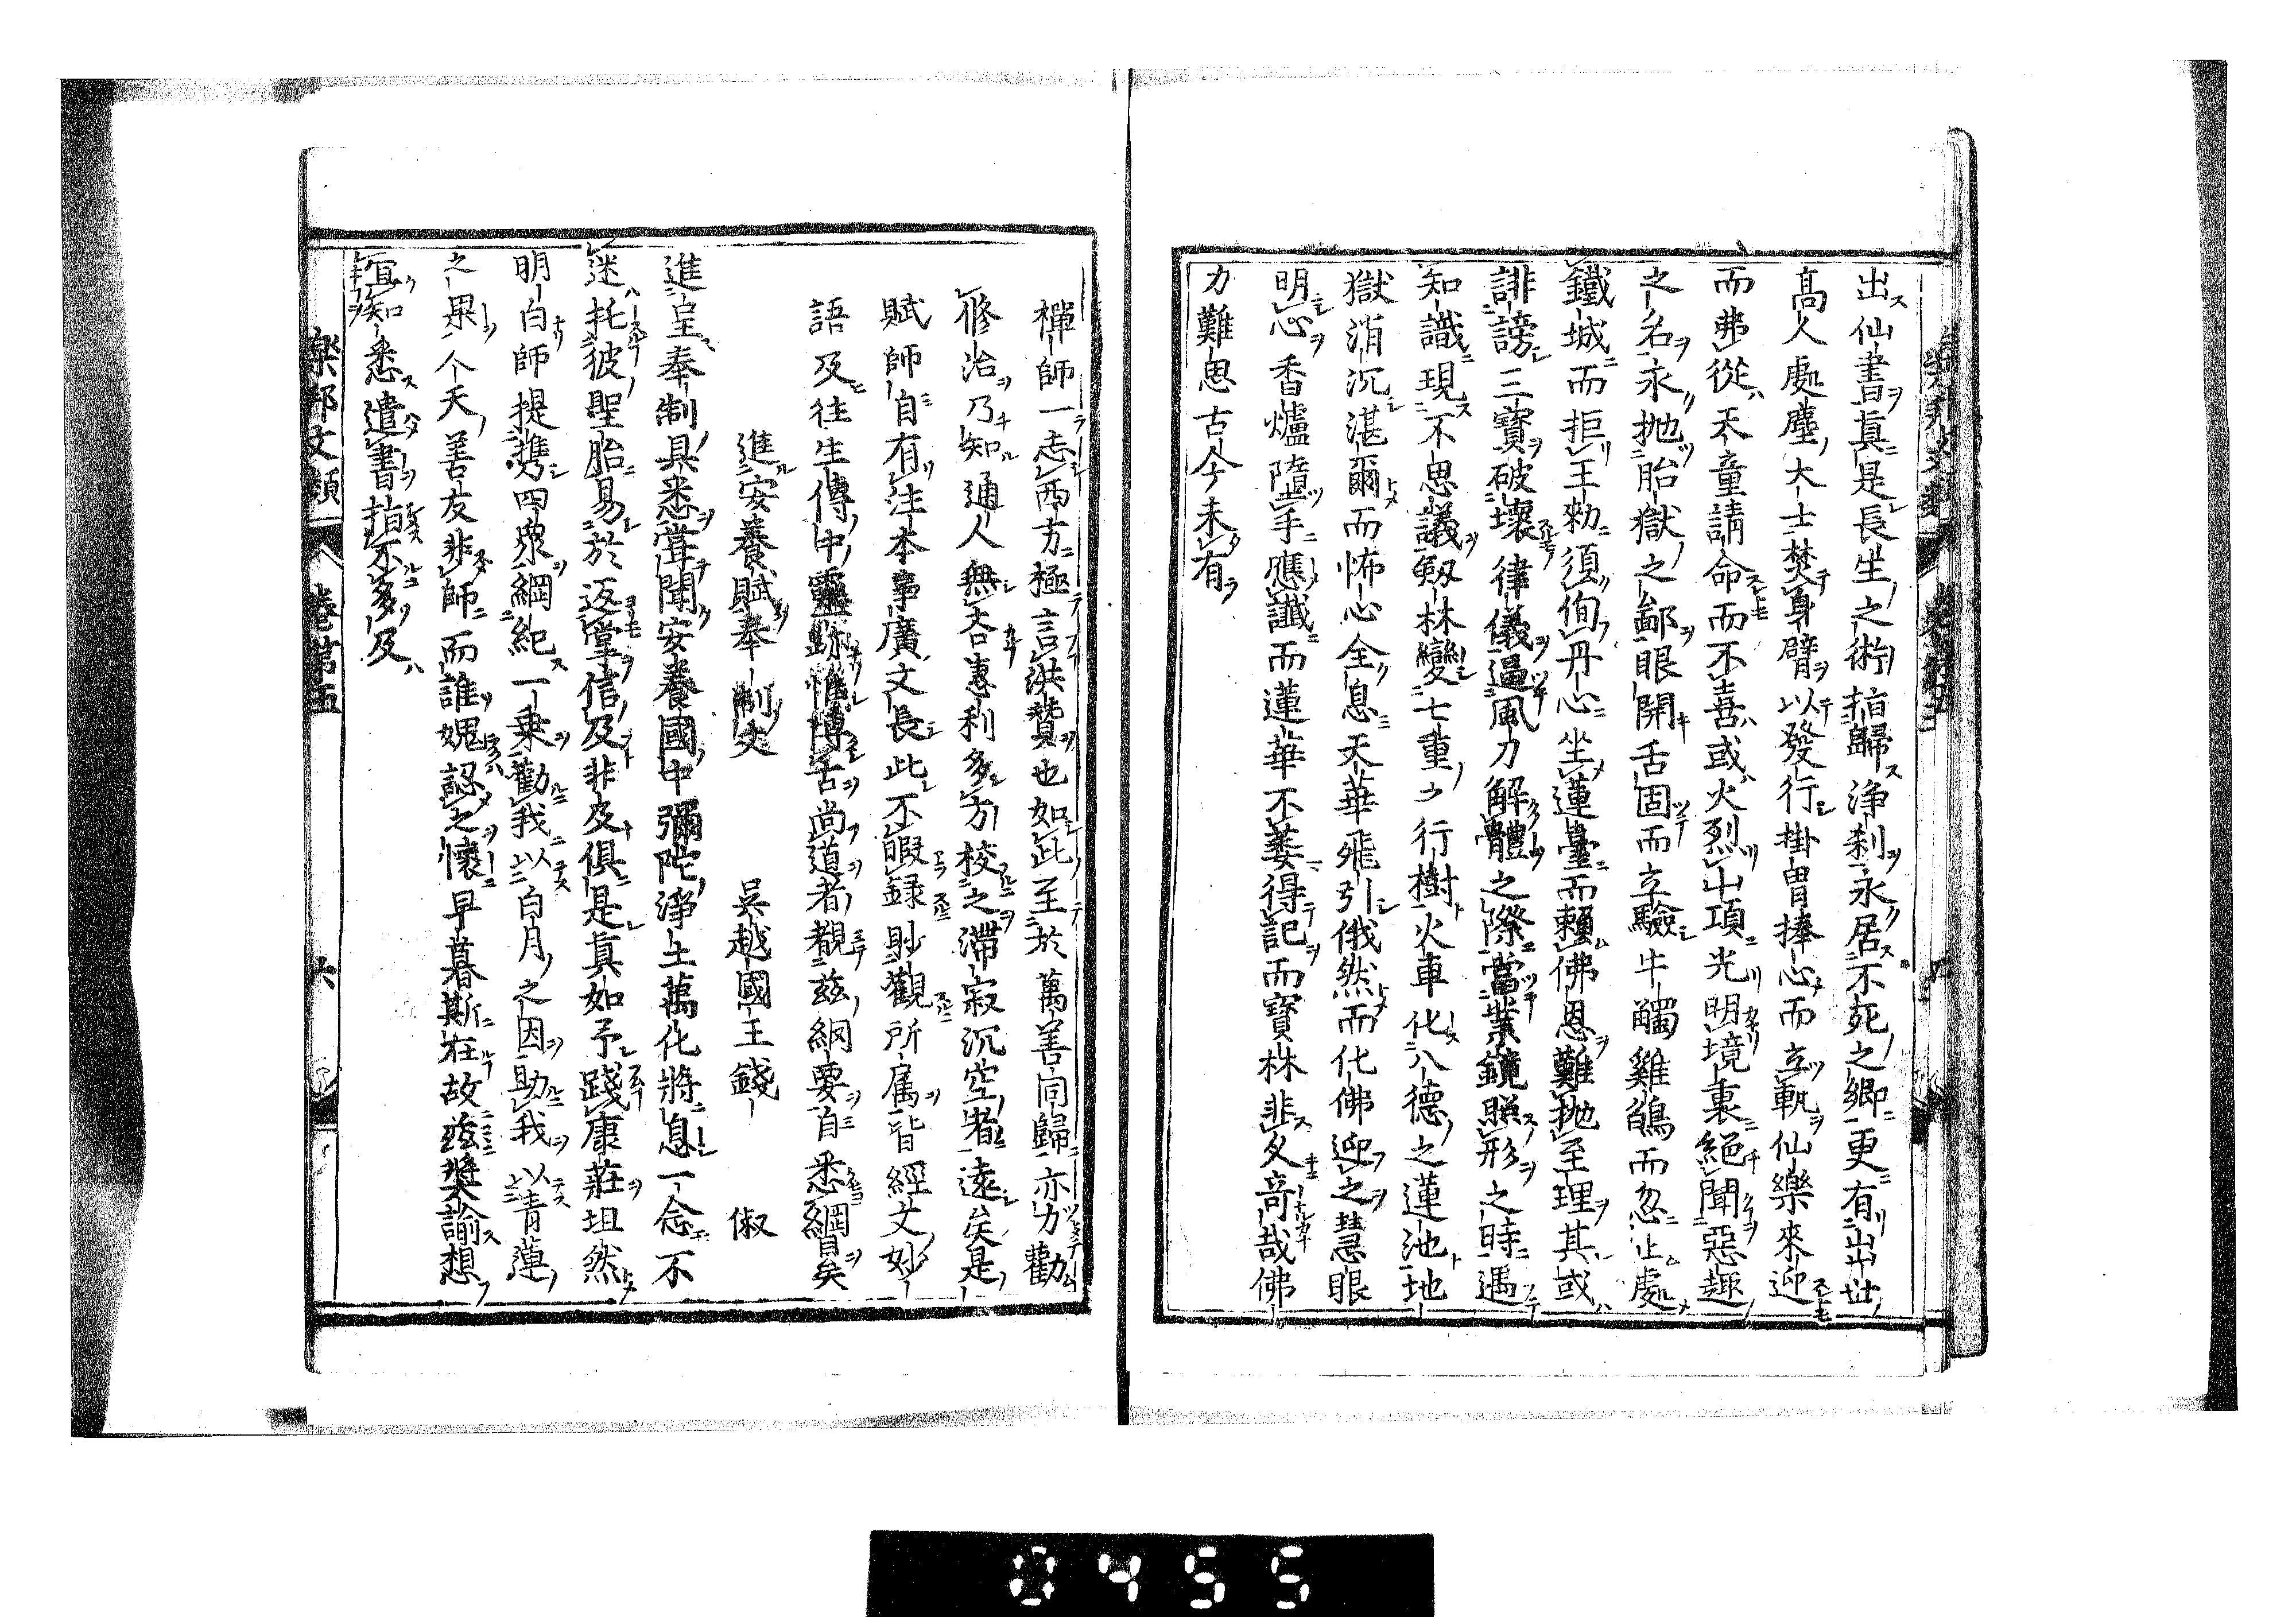 出仙書真是長生之術指歸淨刹永居不死之鄉更有出世
高人處塵大士焚身臂以發行掛冑捧心而立軌仙樂來迎
而弗從天童請命而不喜或火烈山項光明境裏絕聞惡趣
之名永抛胎獄之鄙眼開舌固而立驗牛觸雞鵮而忽止處
鐵城而拒王勑須徇丹心坐蓮臺而賴佛恩難抛至理其或
誹謗三寶破壞律儀逼風刀解體之際當業鏡照形之時遇
知識現不思議劔林變七重之行樹火車化八德之蓮池地
獄消沉湛爾而怖心全息天華飛引俄然而化佛迎之慧眼
明心香爐墮手應讖而蓮華不萎得記而寶株非久竒哉佛
力難思古今未有
禪師一志西方極言洪贊也如此至於萬善同歸亦力勸
修治乃知通人無吝惠利多方校之滯寂沉空者遠矣是
賦師自有注本事廣文長此不暇録眇觀所屬皆經文妙
語及往生傳中靈跡惟博古尚道者覩茲綱要自悉綱目矣
進安養賦奉制文
吳越國王錢 俶
進呈奉制具悉嘗聞安養國中彌陀淨土萬化將息一念不
迷托彼聖胎易於返掌信及非及俱是真如予踐康莊坦然
明白師提携四衆綱紀一乘勸我以白月之因助我以青蓮
之果个天善友非師而誰媿認之懷早暮斯在故茲奬諭想
宜知悉遣書指不多及
樂邦文類 卷第五 六
0455